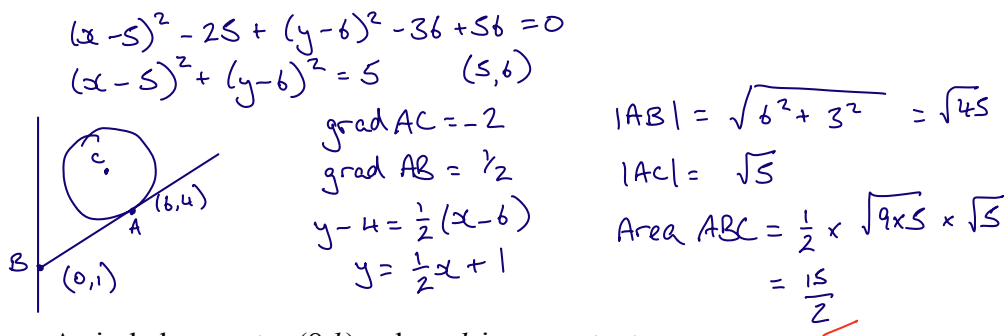 (x-5)² - 25 + (y-6)² - 36 + 56 = 0
(x-5)² + (y-6)² = 5 (5,6)
C
(6,4)
A
B
(0,1)
grad AC = -2
grad AB = ½
y - 4 = ½(x-6)
y = ½x + 1
|AB| = √(6² + 3²) = √45
|AC| = √5
Area ABC = ½ × √(9×5) × √5
= 15/2